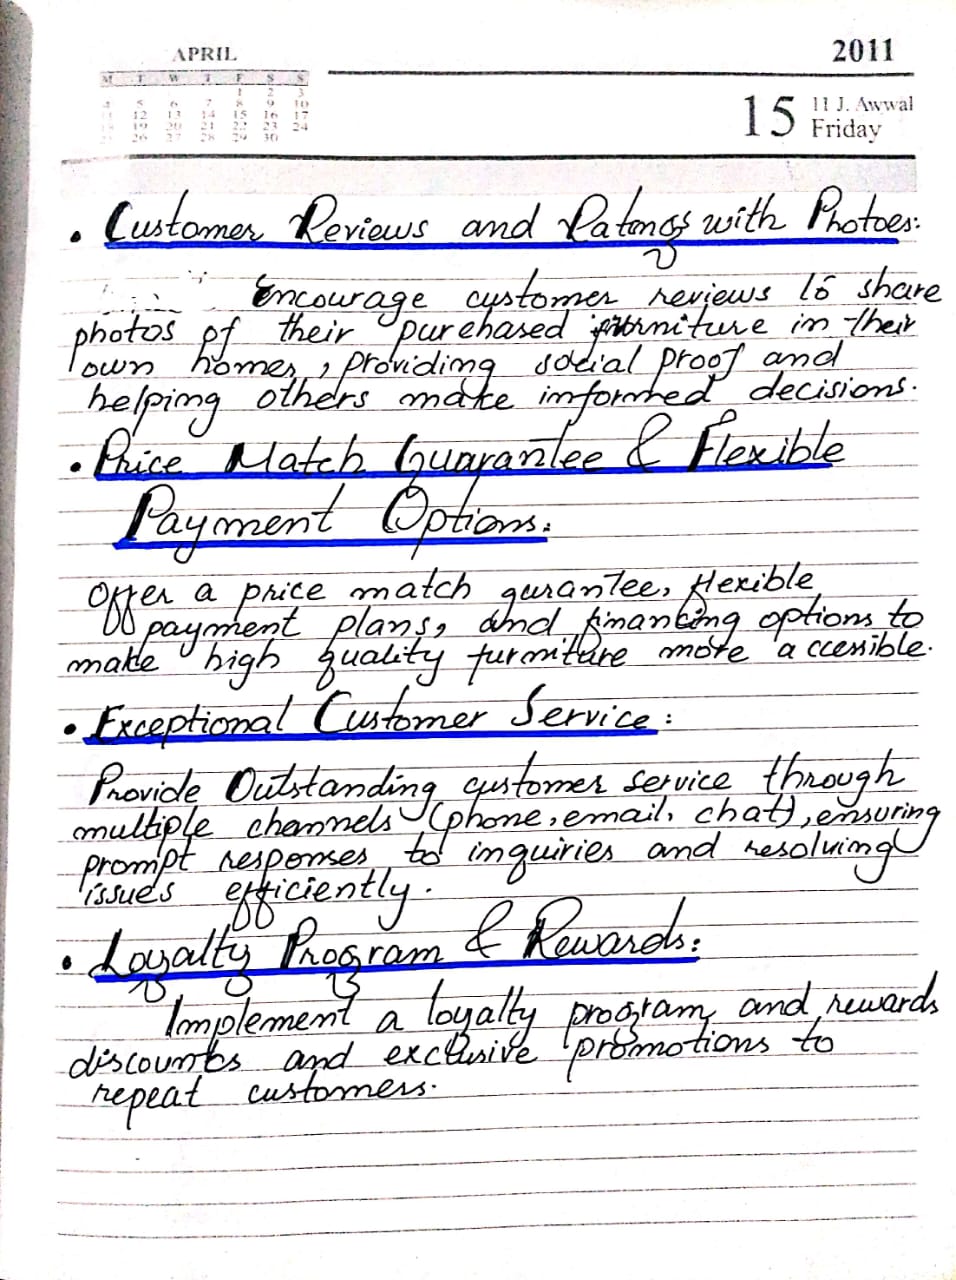 APRIL
2011
M T W T F S S
1 2 3
4 5 6 7 8 9 10
11 12 13 14 15 16 17
18 19 20 21 22 23 24
25 26 27 28 29 30
15 11 J. Awwal
Friday
• Customer Reviews and Ratings with Photoes:
Encourage customer reviews to share
photos of their purchased furniture in their
own homes, providing social proof and
helping others make informed decisions.
• Price Match Guarantee & Flexible
Payment Options:
Offer a price match gurantee, flexible
payment plans, and financing options to
make high quality furniture more accessible.
• Exceptional Customer Service:
Provide Outstanding customer service through
multiple channels (phone, email, chat), ensuring
prompt responses to inquiries and resolving
issues efficiently.
• Loyalty Program & Rewards:
Implement a loyalty program and rewards
discounts and exclusive promotions to
repeat customers.